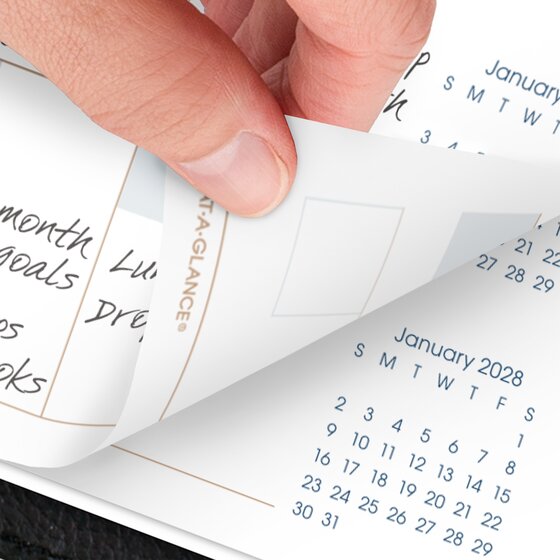 January
S M T W T
3 4
21 22
27 28 29
month
goals
oks
AT-A-GLANCE®
January 2028
S M T W T F S
1
2 3 4 5 6 7 8
9 10 11 12 13 14 15
16 17 18 19 20 21 22
23 24 25 26 27 28 29
30 31